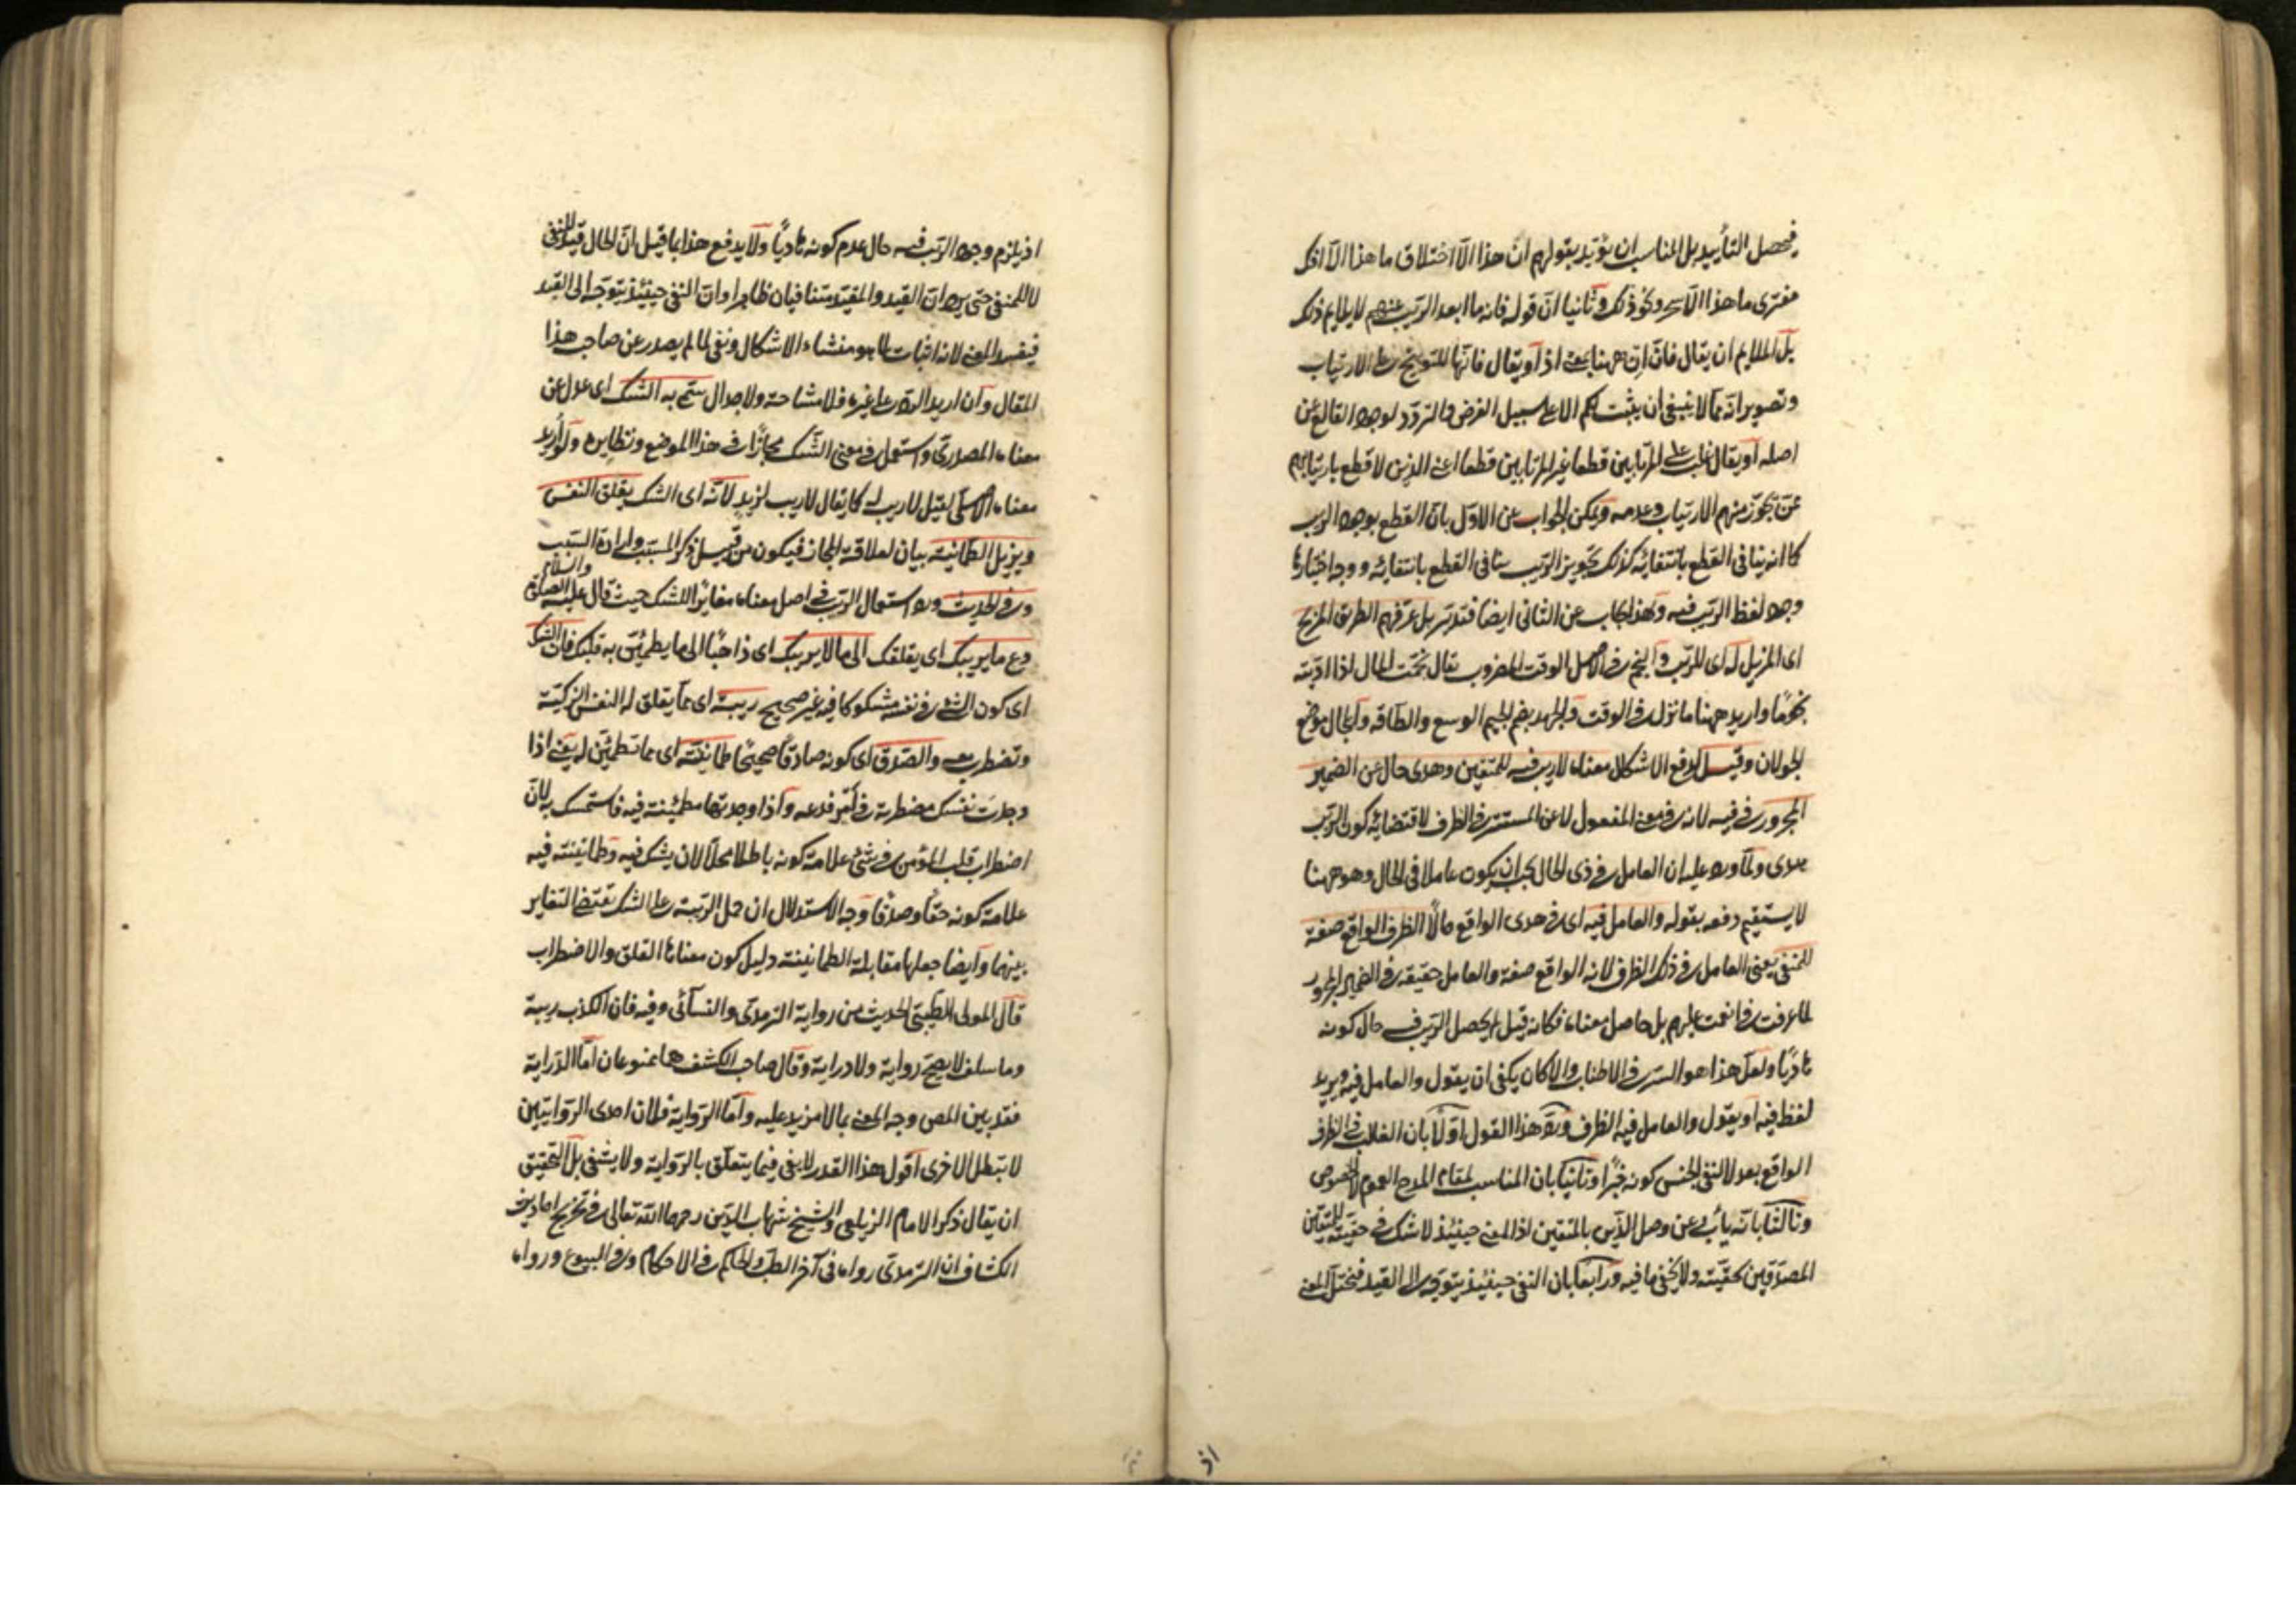 فيحصل التأييد بل المناسب ان يؤيد بقولهم ان هذا الا اختلاق ما هذا الا افك
مفترى ما هذا الا سحر ونحو ذلك وثانيا ان قوله فانه ما ابعد الريب عنهم لا يلايم ذلك
بل الملايم ان يقال فان ان ههنا بمعنى اذ او يقال فانها للتوبيخ على الارتياب
وتصوير انه مما لا ينبغي ان يثبت لكم الا على سبيل الفرض والتردد لوجود القالع عن
اصله او يقال غلب على المرتابين قطعا غير المرتابين قطعا اعني الذين لا قطع بارتيابهم
ممن يجوز منهم الارتياب وعدمه ويمكن الجواب عن الاول بان القطع بوجود الريب
كما انه ينافي القطع بانتفائه كذلك تجويز الريب ينافي القطع بانتفائه ووجه اختيارها
وجود لفظ الريب فيه وبهذا يجاب عن الثاني ايضا فتدبر بل عرفهم الطريق المزيح
اى المزيل له اى للريب والنجم في الاصل الوقت المضروب يقال نجمت المال اذا اديته
نجوما واريد ههنا ما نزل في الوقت والجهد بضم الجيم الوسع والطاقة والمجال موضع
الجولان وقيل لدفع الاشكال معناه لا ريب فيه للمتقين وهدى حال عن الضمير
المجرور في فيه لانه في معنى المفعول لا عن المستتر في الظرف لاقتضائه كون الريب
هدى ولما ورد عليه ان العامل في ذى الحال يجب ان يكون عاملا في الحال وهو ههنا
لا يستقيم دفعه بقوله والعامل فيه اى في هدى الواقع حالا الظرف الواقع صفة
للمنفي يعني العامل في ذلك الظرف لانه الواقع صفة والعامل حقيقة في الضمير المجرور
لما عرفت في انعمت عليهم بل حاصل معناه فكانه قيل لم يحصل الريب فيه حال كونه
هاديا ولعل هذا هو السر في الاطناب والا كان يكفي ان يقول والعامل فيه ويريد
لفظ فيه او يقول والعامل فيه الظرف ورد هذا القول اولا بان الغالب في الظرف
الواقع بعد لا لنفي الجنس كونه خبرا وثانيا بان المناسب لمقام المدح العموم لا الخصوص
وثالثا بانه يأبى عن وصل الذين بالمتقين اذ المعنى حينئذ لا شك في حقيته للمتقين
المصدقين بحقيته ولا يخفى ما فيه ورابعا بان النفي حينئذ يتوجه الى القيد فيختل المعنى
اذ
اذ يلزم وجود الريب فيه حال عدم كونه هاديا ولا يدفع هذا بما قيل ان الحال قيد للنفي
لا للمنفي حتى يرد ان القيد والمقيد متنافيان ظاهرا وان النفي حينئذ يتوجه الى القيد
فيفسد المعنى لانه اثبات لما هو منشاء الاشكال ونفي لما لم يصدر عن صاحب هذا
المقال وان اريد الرد على غيره فلا مشاحة ولا جدال سمى به الشك اى عدل عن
معناه المصدري واستعمل في معنى الشك مجازا في هذا الموضع ونظايره ولو اريد
معناه الاصلي لقيل لا ريب له كما يقال لا ريب لزيد لانه اى الشك يقلق النفس
ويزيل الطمانينة بيان لعلاقة المجاز فيكون من قبيل ذكر المسبب وارادة السبب
وفي الحديث ورد استعمال الريب في اصل معناه مغايرا للشك حيث قال عليه الصلوة والسلام
دع ما يريبك اى يقلقك الى ما لا يريبك اى ذاهبا الى ما يطمئن به قلبك فان الشك
اى كون الشئ في نفسه مشكوكا فيه غير صحيح ريبة اى مما يقلق له النفس الزكية
وتضطرب معه والصدق اى كونه صادقا صحيحا طمانينة اى مما تطمئن له يعني اذا
وجدت نفسك مضطربة في امر فدعه واذا وجدتها مطمئنة فيه فاستمسك به لان
اضطراب قلب المؤمن في شئ علامة كونه باطلا محلا لان يشك فيه وطمانينته فيه
علامة كونه حقا وصدقا وجه الاستدلال ان حمل الريبة على الشك يقتضي التغاير
بينهما وايضا جعلها مقابلة الطمانينة دليل كون معناها القلق والاضطراب
قال المولى الطيبي الحديث من رواية الترمذي والنسائي وفيه فان الكذب ريبة
وما سلف لا يصح رواية ولا دراية وقال صاحب الكشف هما ممنوعان اما الدراية
فقد بين المص وجه المعنى بما لا مزيد عليه واما الرواية فلان احدى الروايتين
لا تبطل الاخرى اقول هذا القدر لا يغني فيما يتعلق بالرواية ولا يشفي بل التحقيق
ان يقال ذكر الامام الزيلعي والشيخ شهاب الدين رحمهما الله تعالى في تخريج احاديث
الكشاف ان الترمذي رواه في آخر الطب والحاكم في الاحكام وفي البيوع ورواه